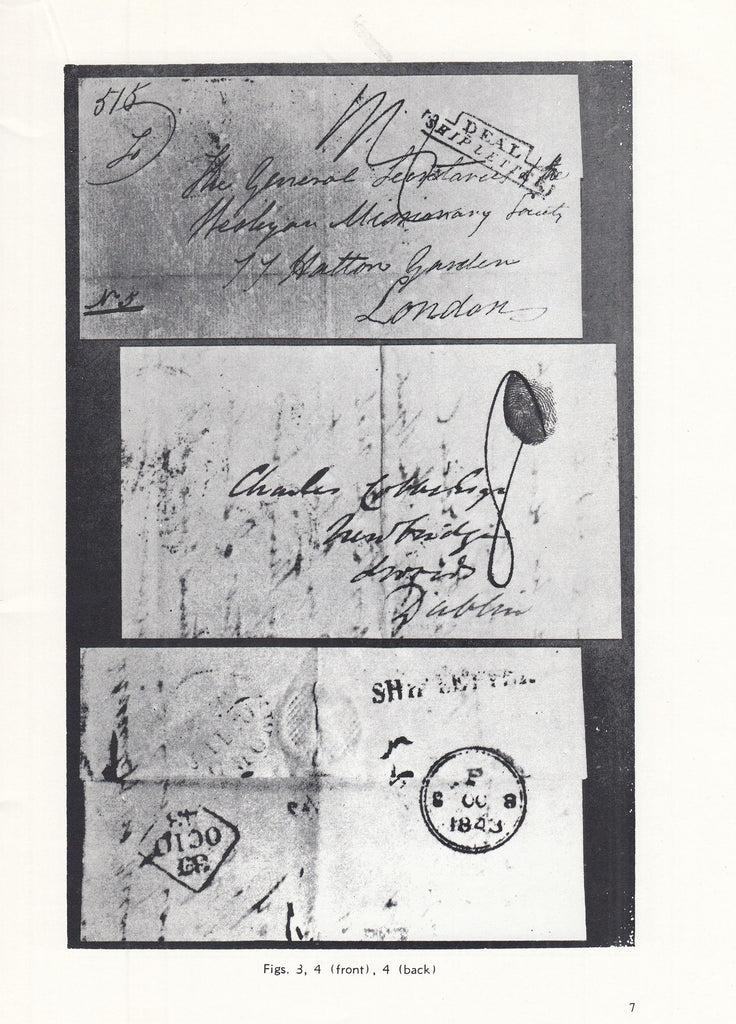 515
To
DEAL
SHIP LETTER
The General Secretaries of the
Wesleyan Missionary Society
77 Hatton Garden
London
No 5
Charles Cobbe Esqr
Newbridge
Dublin
SHIP LETTER
F
8 OC 8
1843
OC 10
43
Figs. 3, 4 (front), 4 (back)
7